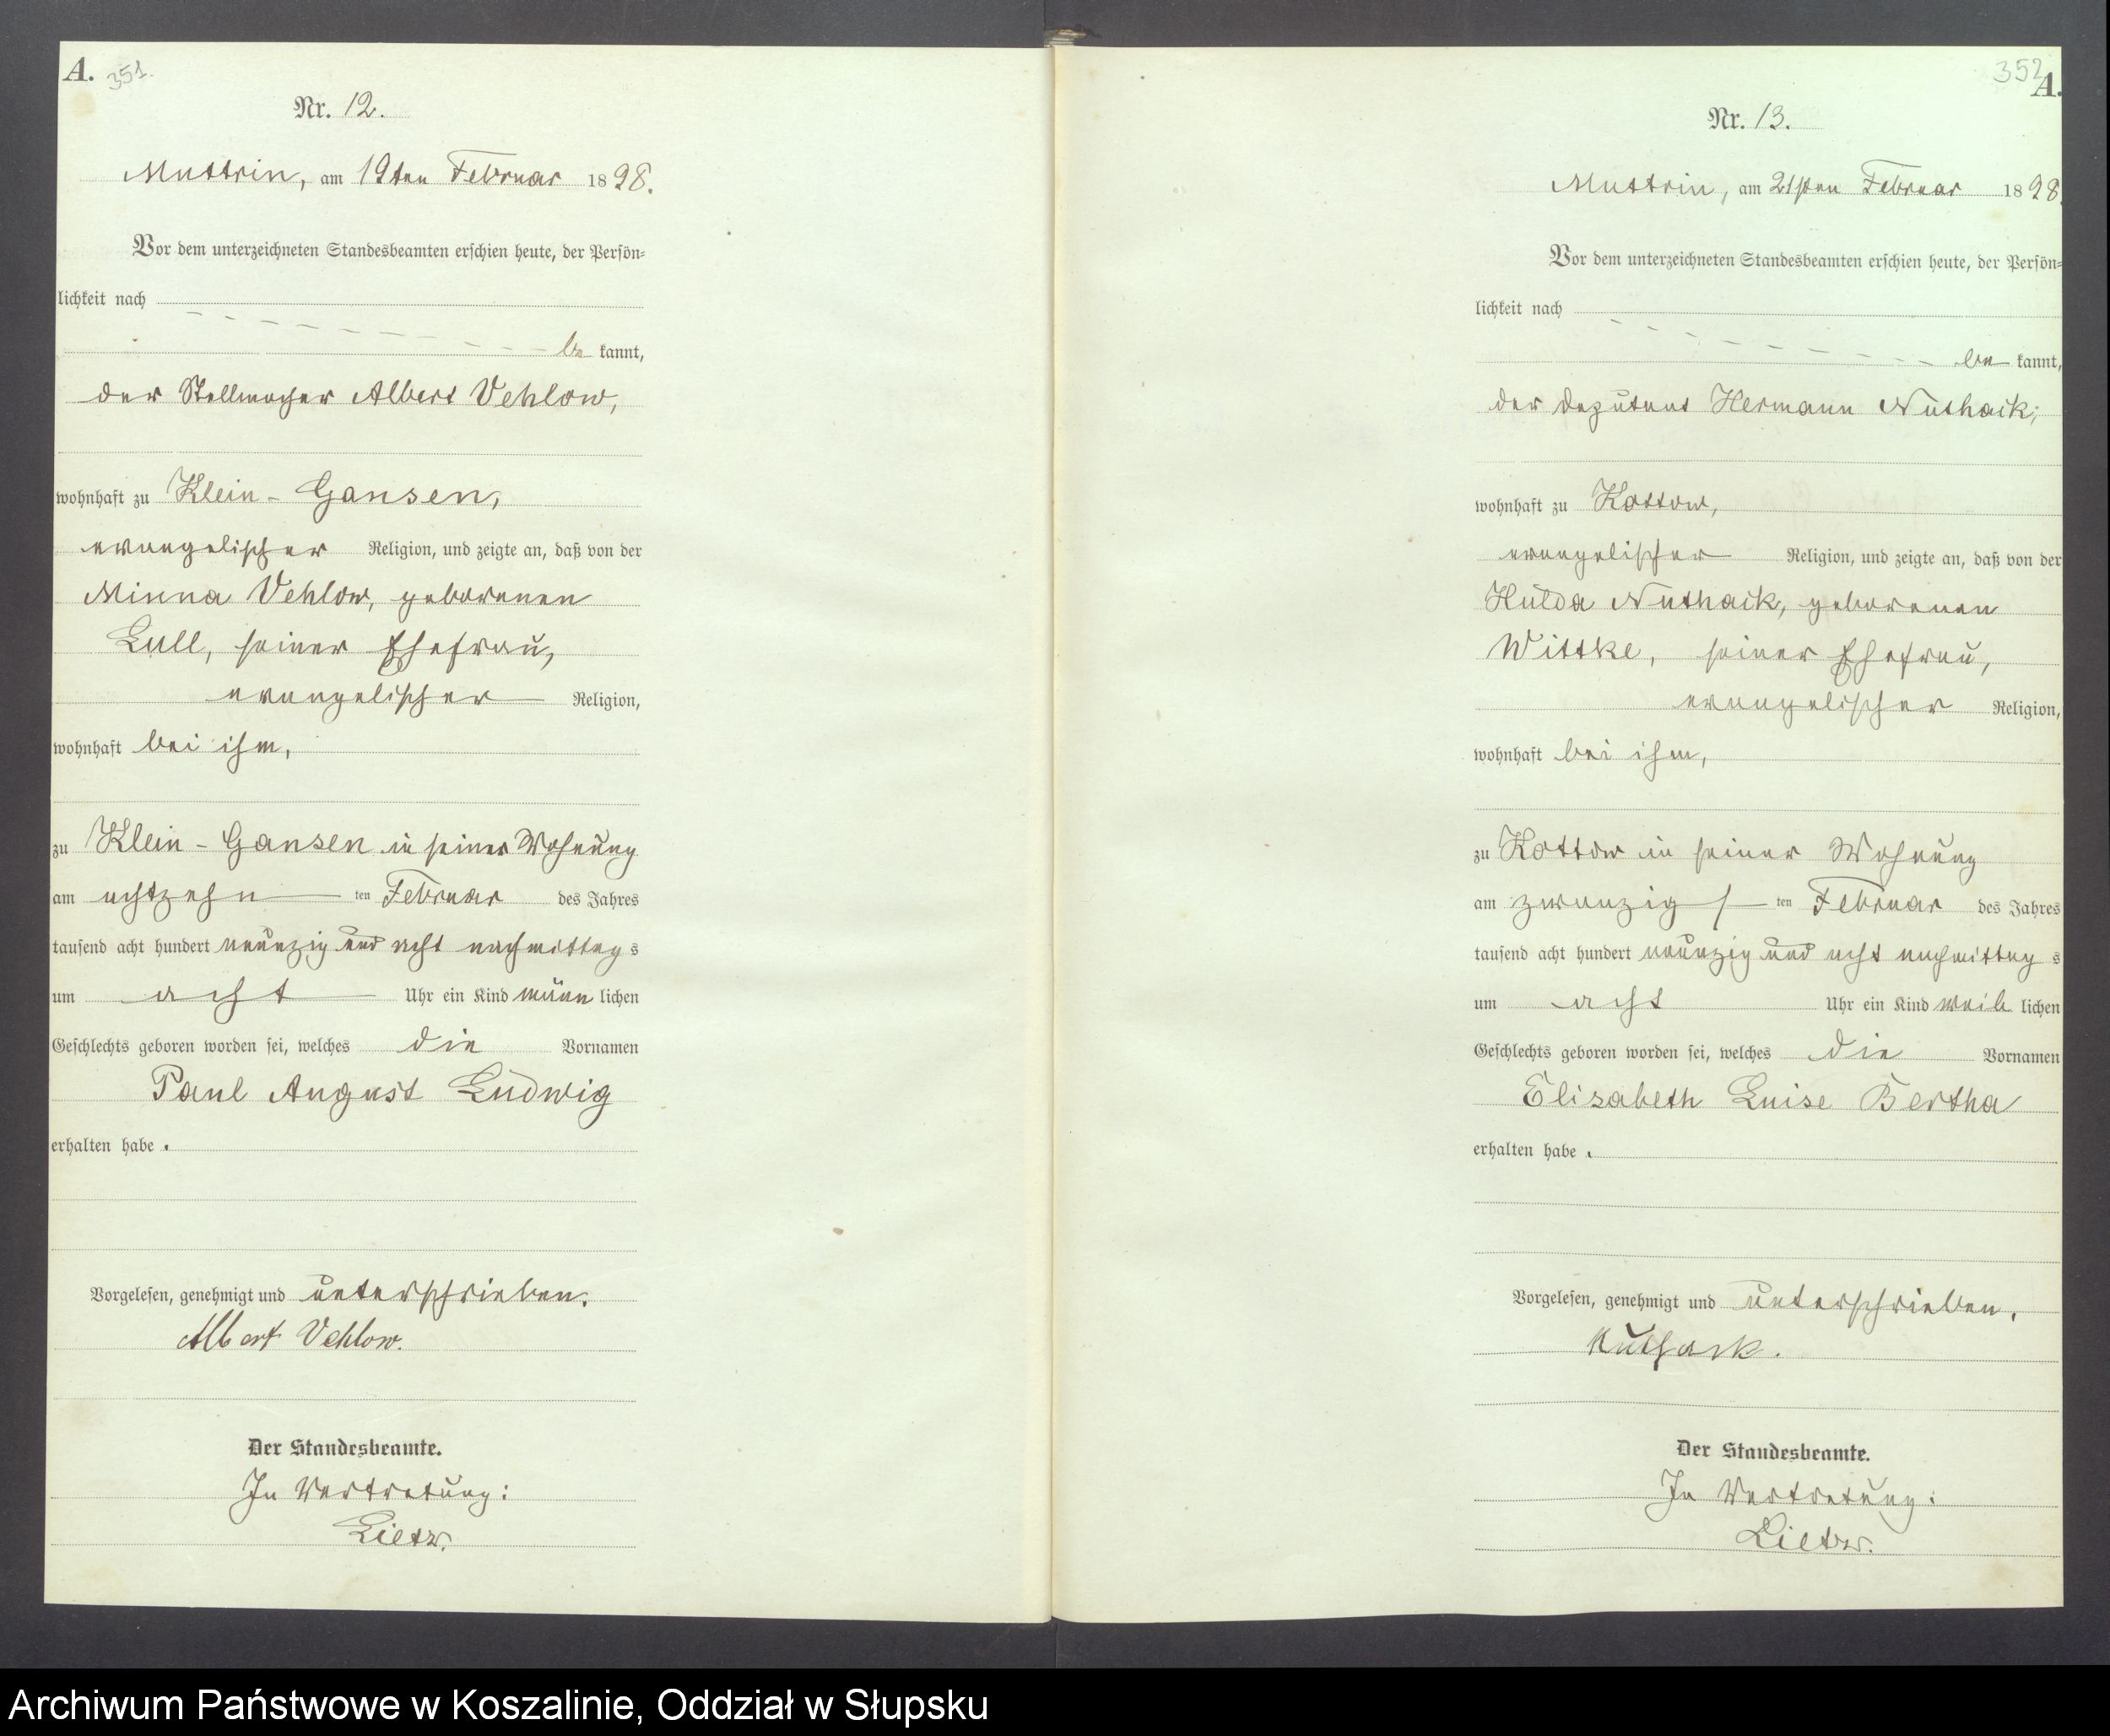 A. 351.
Nr. 12.
Muttrin, am 19ten Februar 1898.
Vor dem unterzeichneten Standesbeamten erschien heute, der Persön-
lichkeit nach
be kannt,
der Stellmacher Albert Vehlow,
wohnhaft zu Klein-Gansen,
evangelischer Religion, und zeigte an, daß von der
Minna Vehlow, geborenen
Lull, seiner Ehefrau,
evangelischer Religion,
wohnhaft bei ihm,
zu Klein-Gansen in seiner Wohnung
am achtzehn ten Februar des Jahres
tausend acht hundert neunzig und acht nachmittag s
um acht Uhr ein Kind männ lichen
Geschlechts geboren worden sei, welches die Vornamen
Paul August Ludwig
erhalten habe.
Vorgelesen, genehmigt und unterschrieben.
Albert Vehlow.
Der Standesbeamte.
In Vertretung:
Lietz.
352 A.
Nr. 13.
Muttrin, am 21sten Februar 1898.
Vor dem unterzeichneten Standesbeamten erschien heute, der Persön-
lichkeit nach
be kannt,
der Deputant Hermann Nuthack,
wohnhaft zu Kottow,
evangelischer Religion, und zeigte an, daß von der
Hulda Nuthack, geborenen
Wittke, seiner Ehefrau,
evangelischer Religion,
wohnhaft bei ihm,
zu Kottow in seiner Wohnung
am zwanzigs ten Februar des Jahres
tausend acht hundert neunzig und acht nachmittag s
um acht Uhr ein Kind weib lichen
Geschlechts geboren worden sei, welches die Vornamen
Elisabeth Luise Bertha
erhalten habe.
Vorgelesen, genehmigt und unterschrieben.
Nuthack.
Der Standesbeamte.
In Vertretung:
Lietz.
Archiwum Państwowe w Koszalinie, Oddział w Słupsku